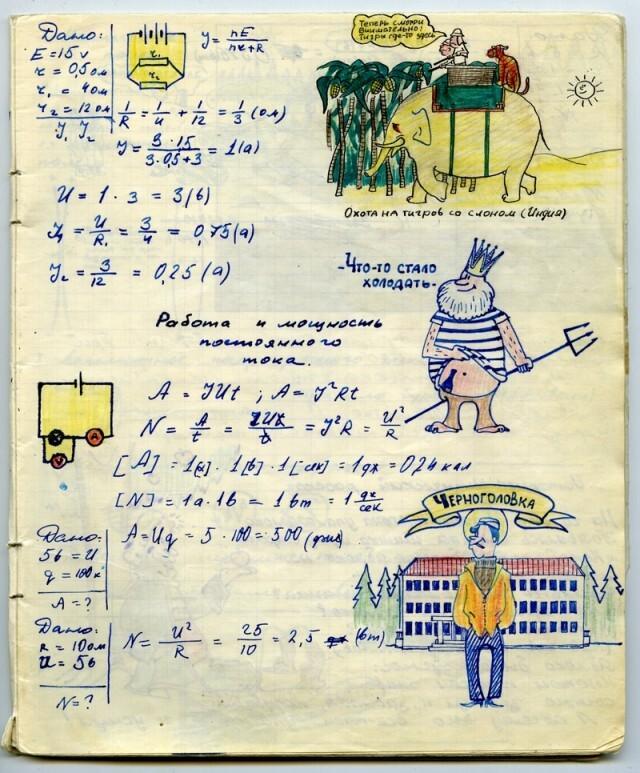 Дано:
E = 15 v
r = 0,5 ом
r₁ = 4 ом
r₂ = 12 ом
J₁ J₂
r₁
r₂
J = nE / nr+R
1/R = 1/4 + 1/12 = 1/3 (ом)
J = 3·15 / 3·0,5+3 = 1 (а)
U = 1 · 3 = 3 (в)
J₁ = U/R₁ = 3/4 = 0,75 (а)
J₂ = 3/12 = 0,25 (а)
Теперь смотри
внимательно:
Тигры где-то здесь
Охота на тигров со слоном (Индия)
-Что-то стало
холодать-
Работа и мощность
постоянного
тока.
A = JUt ; A = J²Rt
N = A/t = JUt/t = J²R = U²/R
А
V
[A] = 1[а] · 1[в] · 1[сек] = 1 дж = 0,24 кал
[N] = 1а · 1в = 1 вт = 1 дж/сек
Черноголовка
Дано:
5в = U
q = 100к
A = ?
A = Uq = 5 · 100 = 500 (дж)
Дано:
R = 10 ом
U = 5в
N = ?
N = U²/R = 25/10 = 2,5 (вт)